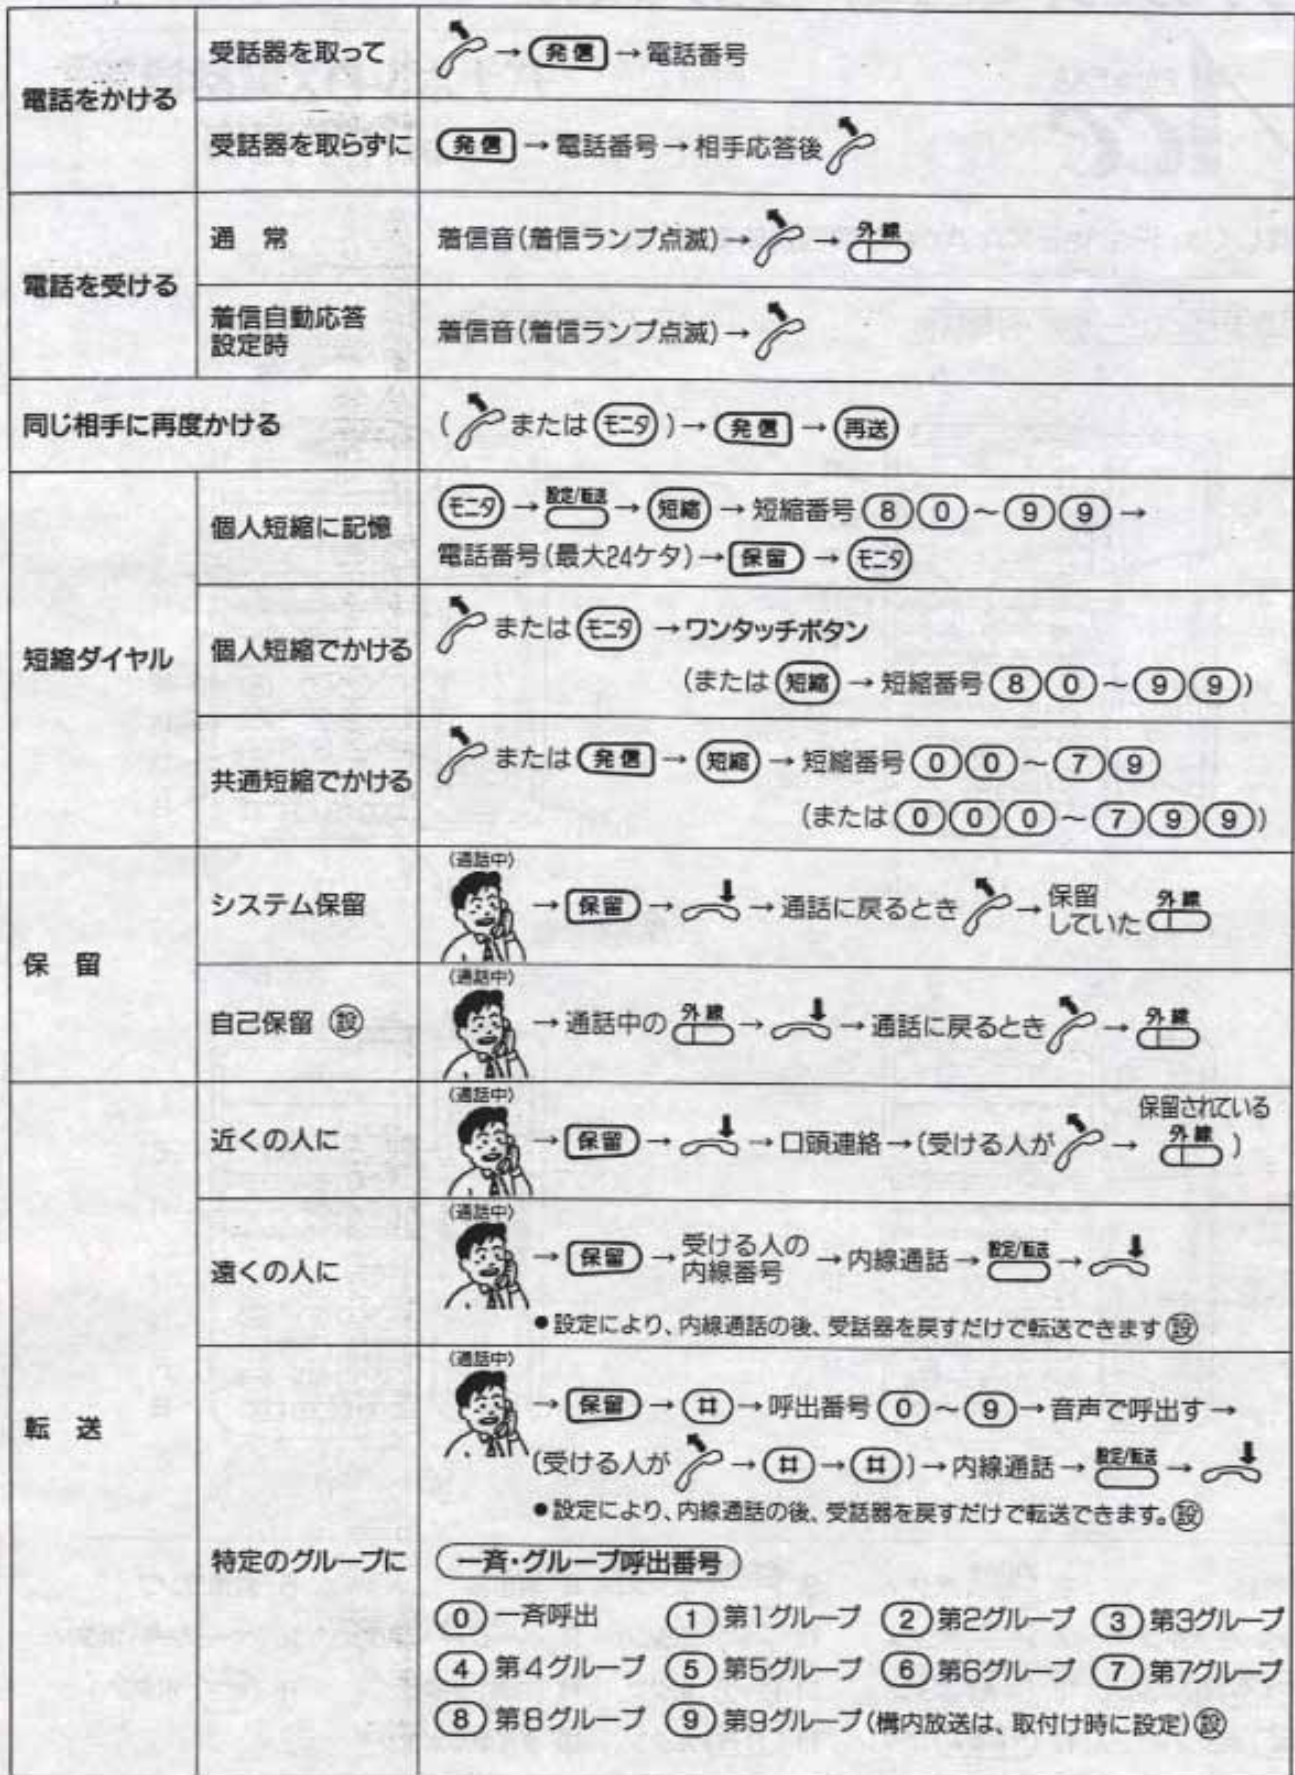 電話をかける
受話器を取って
→ 発信 → 電話番号
受話器を取らずに
発信 → 電話番号 → 相手応答後
電話を受ける
通 常
着信音(着信ランプ点滅) → → 外線
着信自動応答
設定時
着信音(着信ランプ点滅) →
同じ相手に再度かける
( または モニタ ) → 発信 → 再送
短縮ダイヤル
個人短縮に記憶
モニタ → 設定/転送 → 短縮 → 短縮番号 8 0 ~ 9 9 →
電話番号(最大24ケタ) → 保留 → モニタ
個人短縮でかける
または モニタ → ワンタッチボタン
(または 短縮 → 短縮番号 8 0 ~ 9 9 )
共通短縮でかける
または 発信 → 短縮 → 短縮番号 0 0 ~ 7 9
(または 0 0 0 ~ 7 9 9 )
保 留
システム保留
(通話中)
→ 保留 → → 通話に戻るとき → 保留していた 外線
自己保留 設
(通話中)
→ 通話中の 外線 → → 通話に戻るとき → 外線
転 送
近くの人に
(通話中)
→ 保留 → → 口頭連絡 → (受ける人が → 保留されている 外線 )
遠くの人に
(通話中)
→ 保留 → 受ける人の内線番号 → 内線通話 → 設定/転送 →
●設定により、内線通話の後、受話器を戻すだけで転送できます 設
特定のグループに
(通話中)
→ 保留 → # → 呼出番号 0 ~ 9 → 音声で呼出す →
(受ける人が → # → # ) → 内線通話 → 設定/転送 →
●設定により、内線通話の後、受話器を戻すだけで転送できます。設
一斉・グループ呼出番号
0 一斉呼出 1 第1グループ 2 第2グループ 3 第3グループ
4 第4グループ 5 第5グループ 6 第6グループ 7 第7グループ
8 第8グループ 9 第9グループ(構内放送は、取付け時に設定) 設